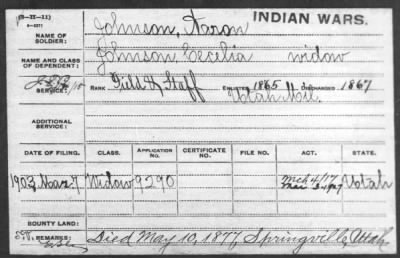 (3-II-11)
INDIAN WARS.
NAME OF SOLDIER: Johnson, Aaron
NAME AND CLASS OF DEPENDENT: Johnson, Cecelia widow
SERVICE: RANK Field & Staff ENLISTED 1865 DISCHARGED 1867
Utah Mil.
ADDITIONAL SERVICE:
DATE OF FILING. CLASS. APPLICATION NO. CERTIFICATE NO. FILE NO. ACT. STATE.
1903 Mar. 7 Widow 9290 Mch 4/17 Utah
BOUNTY LAND:
REMARKS: Died May 10, 1877, Springville, Utah